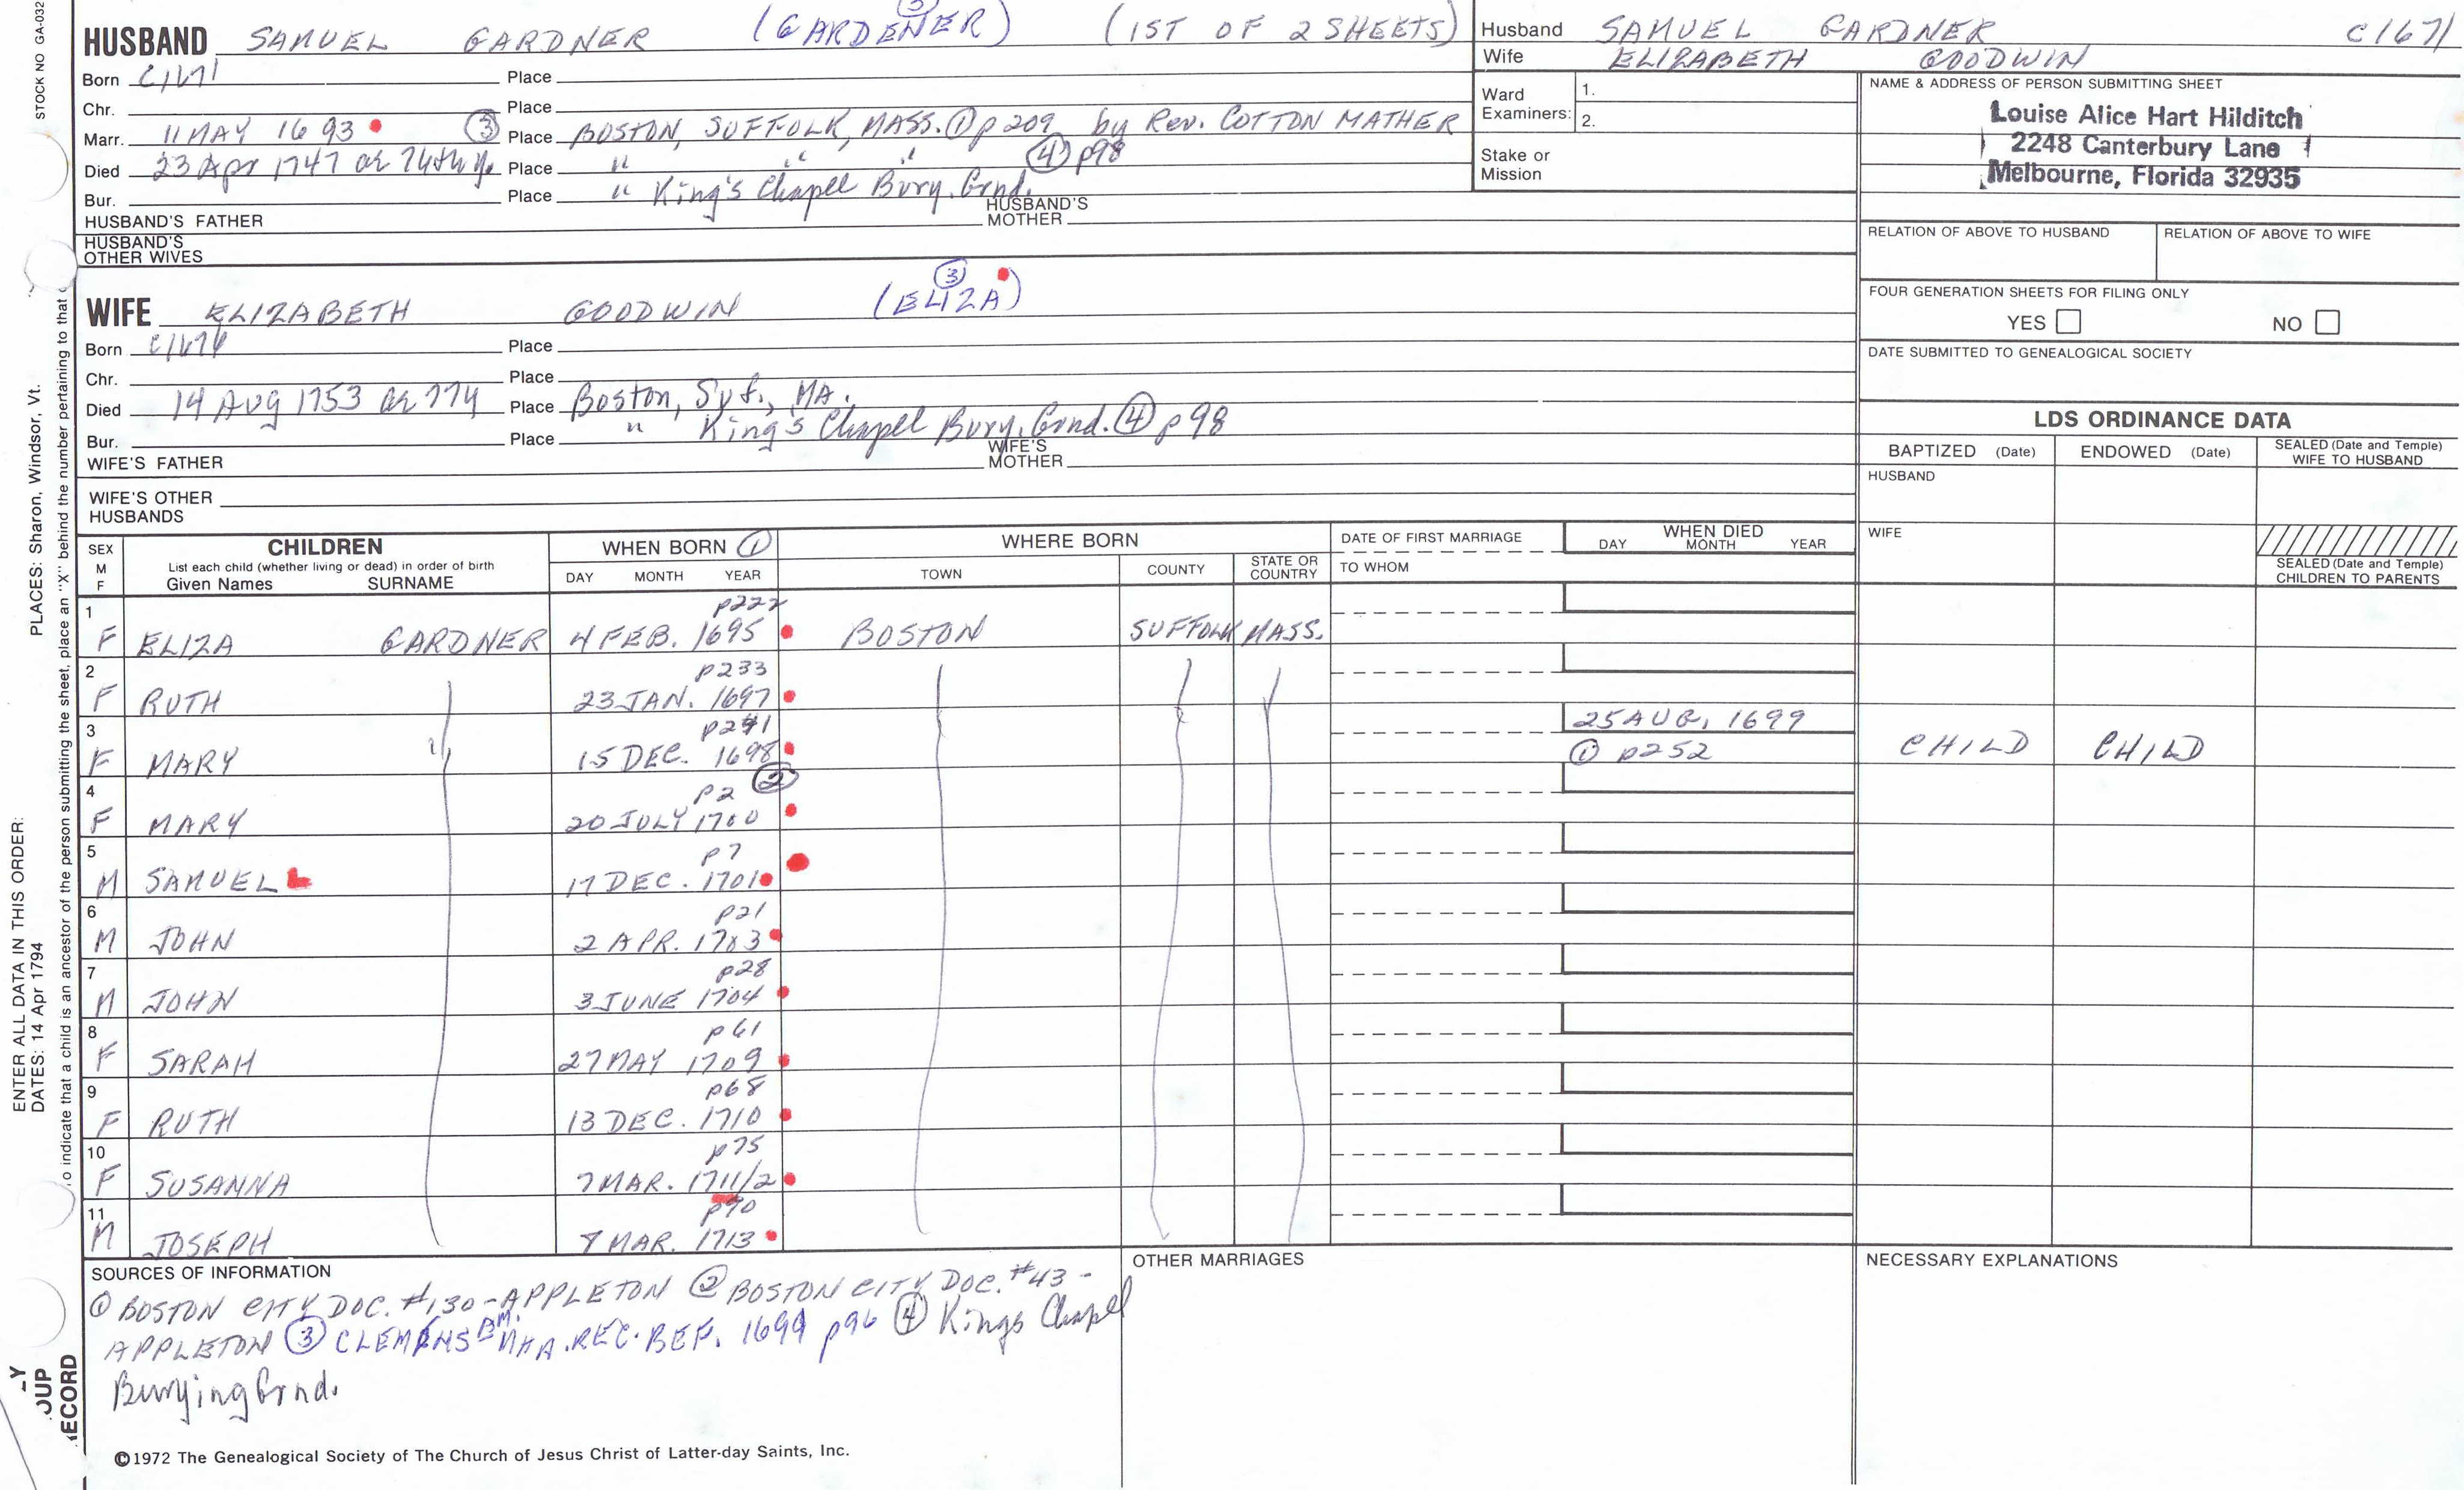 STOCK NO GA-032
PLACES: Sharon, Windsor, Vt.
ENTER ALL DATA IN THIS ORDER:
DATES: 14 Apr 1794
o indicate that a child is an ancestor of the person submitting the sheet, place an "X" behind the number pertaining to that c
LY
OUP
ECORD
HUSBAND SAMUEL GARDNER (GARDENER) ③ (1ST OF 2 SHEETS)
Born C1671 Place
Chr. Place
Marr. 11 MAY 1693 ③ Place BOSTON, SUFFOLK, MASS. ① p209 by Rev. COTTON MATHER
Died 23 Apr 1747 ae 74th y. Place " " " ④ p98
Bur. Place " King's Chapel Bury. Grnd.
HUSBAND'S FATHER HUSBAND'S MOTHER
HUSBAND'S OTHER WIVES
WIFE ELIZABETH GOODWIN (ELIZA) ③
Born C1676 Place
Chr. Place
Died 14 Aug 1753 ae 77y Place Boston, Suf., MA.
Bur. Place " King's Chapel Bury. Grnd. ④ p98
WIFE'S FATHER WIFE'S MOTHER
WIFE'S OTHER HUSBANDS
Husband SAMUEL GARDNER C1671
Wife ELIZABETH GOODWIN
Ward Examiners: 1.
2.
Stake or Mission
NAME & ADDRESS OF PERSON SUBMITTING SHEET
Louise Alice Hart Hilditch
2248 Canterbury Lane
Melbourne, Florida 32935
RELATION OF ABOVE TO HUSBAND RELATION OF ABOVE TO WIFE
FOUR GENERATION SHEETS FOR FILING ONLY
YES NO
DATE SUBMITTED TO GENEALOGICAL SOCIETY
LDS ORDINANCE DATA
BAPTIZED (Date) ENDOWED (Date) SEALED (Date and Temple) WIFE TO HUSBAND
HUSBAND
WIFE
SEALED (Date and Temple) CHILDREN TO PARENTS
SEX M F CHILDREN WHEN BORN ① WHERE BORN DATE OF FIRST MARRIAGE WHEN DIED
List each child (whether living or dead) in order of birth
Given Names SURNAME DAY MONTH YEAR TOWN COUNTY STATE OR COUNTRY TO WHOM DAY MONTH YEAR
1 p222
F ELIZA GARDNER 4 FEB. 1695 BOSTON SUFFOLK MASS.
2 p233
F RUTH 23 JAN. 1697
3 p241 25 AUG, 1699
F MARY " 15 DEC. 1698 ① p252 CHILD CHILD
4 p2 ②
F MARY 20 JULY 1700
5 p7
M SAMUEL 17 DEC. 1701
6 p21
M JOHN 2 APR. 1703
7 p28
M JOHN 3 JUNE 1704
8 p61
F SARAH 27 MAY 1709
9 p68
F RUTH 13 DEC. 1710
10 p75
F SUSANNA 7 MAR. 1711/2
11 p90
M JOSEPH 8 MAR. 1713
SOURCES OF INFORMATION
① BOSTON CITY DOC. #130 - APPLETON ② BOSTON CITY DOC. #43 -
APPLETON ③ CLEMENS BM. REC. BEF. 1699 p96 ④ Kings Chapel
Burying Grnd.
OTHER MARRIAGES
NECESSARY EXPLANATIONS
©1972 The Genealogical Society of The Church of Jesus Christ of Latter-day Saints, Inc.